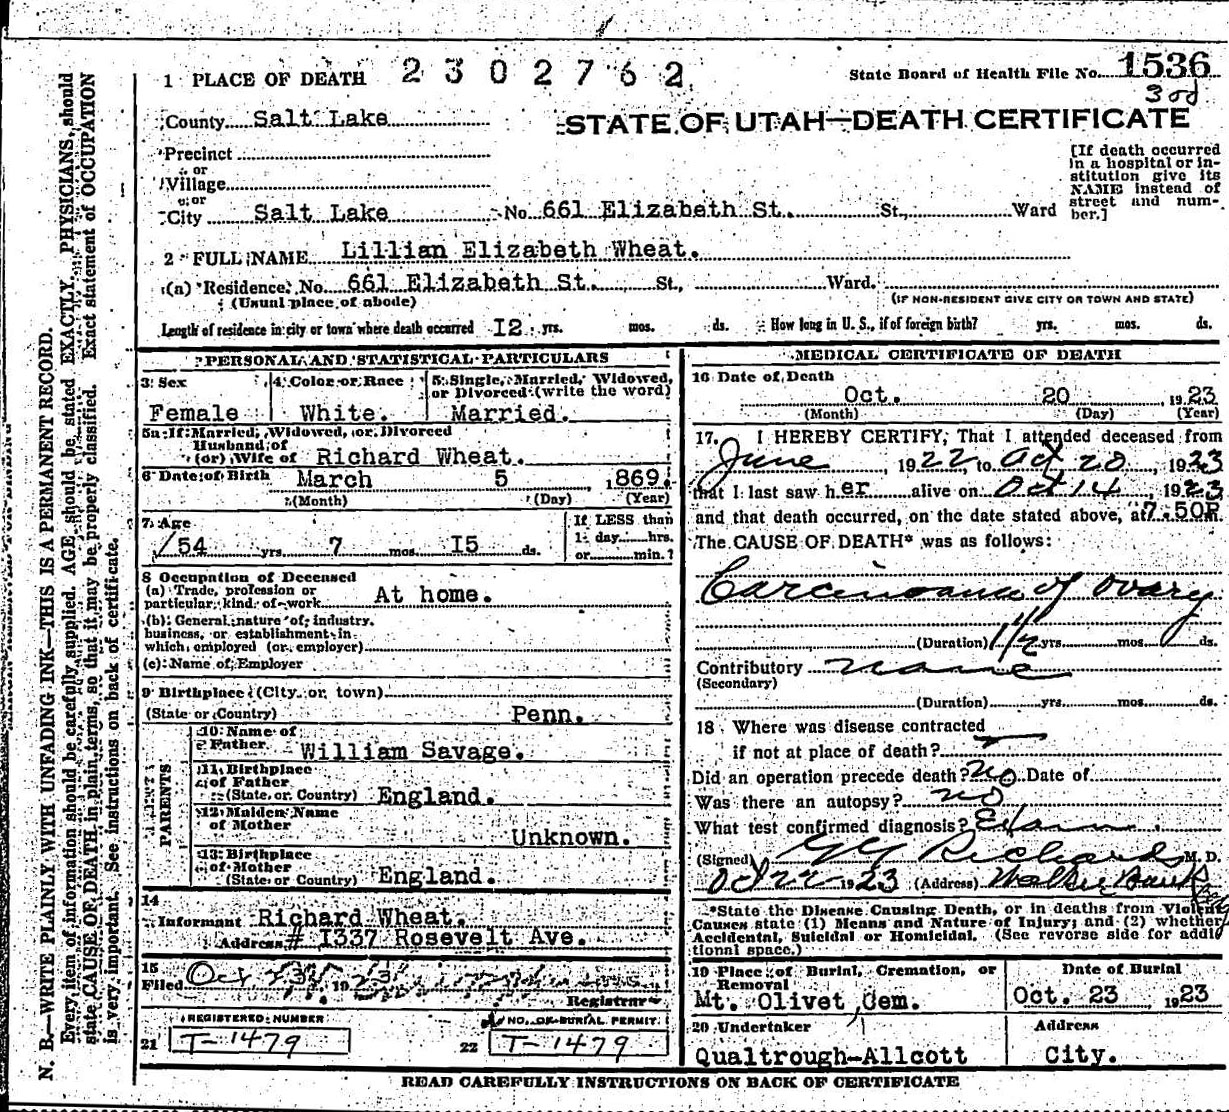 1 PLACE OF DEATH 2302762 State Board of Health File No. 1536
County Salt Lake
STATE OF UTAH—DEATH CERTIFICATE
Precinct
or
Village
or
City Salt Lake No. 661 Elizabeth St. St., Ward
[If death occurred
in a hospital or in-
stitution give its
NAME instead of
street and num-
ber.]
2 FULL NAME Lillian Elizabeth Wheat.
(a) Residence. No. 661 Elizabeth St. St., Ward.
(Usual place of abode) (IF NON-RESIDENT GIVE CITY OR TOWN AND STATE)
Length of residence in city or town where death occurred I2 yrs. mos. ds. How long in U. S., if of foreign birth? yrs. mos. ds.
PERSONAL AND STATISTICAL PARTICULARS
3 Sex 4 Color or Race 5 Single, Married, Widowed,
or Divorced (write the word)
Female White. Married.
5a If Married, Widowed, or Divorced
Husband of
(or) Wife of Richard Wheat.
6 Date of Birth March 5 1869.
(Month) (Day) (Year)
7 Age If LESS than
54 yrs. 7 mos. I5 ds. 1 day hrs.
or min.?
8 Occupation of Deceased
(a) Trade, profession or
particular kind of work At home.
(b) General nature of industry,
business, or establishment in
which employed (or employer)
(c) Name of Employer
9 Birthplace (City or town)
(State or Country) Penn.
PARENTS
10 Name of
Father William Savage.
11 Birthplace
of Father
(State or Country) England.
12 Maiden Name
of Mother Unknown.
13 Birthplace
of Mother
(State or Country) England.
14
Informant Richard Wheat.
Address # I337 Rosevelt Ave.
15
Filed Oct 23 1923
Registrar
REGISTERED NUMBER NO. OF BURIAL PERMIT
21 T-1479 22 T-1479
MEDICAL CERTIFICATE OF DEATH
16 Date of Death
Oct. 20 1923
(Month) (Day) (Year)
17. I HEREBY CERTIFY, That I attended deceased from
June, 1922 to Oct 20, 1923
that I last saw her alive on Oct 14, 1923
and that death occurred, on the date stated above, at 7.50P.
The CAUSE OF DEATH* was as follows:
Carcinoma of ovary
(Duration) 1 1/2 yrs. mos. ds.
Contributory none
(Secondary)
(Duration) yrs. mos. ds.
18 Where was disease contracted
if not at place of death?
Did an operation precede death? no Date of
Was there an autopsy? no
What test confirmed diagnosis? Exam.
(Signed) G G Richards M. D.
Oct 22 1923 (Address) Walker Bank Bldg
*State the Disease Causing Death, or in deaths from Violent
Causes state (1) Means and Nature of Injury; and (2) whether
Accidental, Suicidal or Homicidal. (See reverse side for addi-
tional space.)
19 Place of Burial, Cremation, or Date of Burial
Removal
Mt. Olivet Cem. Oct. 23 1923
20 Undertaker Address
Qualtrough-Allcott City.
READ CAREFULLY INSTRUCTIONS ON BACK OF CERTIFICATE
N. B.—WRITE PLAINLY WITH UNFADING INK—THIS IS A PERMANENT RECORD.
Every item of information should be carefully supplied. AGE should be stated EXACTLY. PHYSICIANS should
state CAUSE OF DEATH in plain terms, so that it may be properly classified. Exact statement of OCCUPATION
is very important. See instructions on back of certificate.